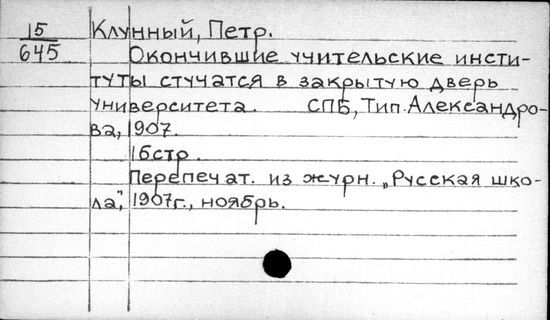 15
645
Клунный, Петр.
Окончившие учительские инсти-
туты стучатся в закрытую дверь
университета. СПБ, Тип. Александро-
ва, 1907.
16 стр.
Перепечат. из журн. „Русская шко-
ла", 1907г., ноябрь.